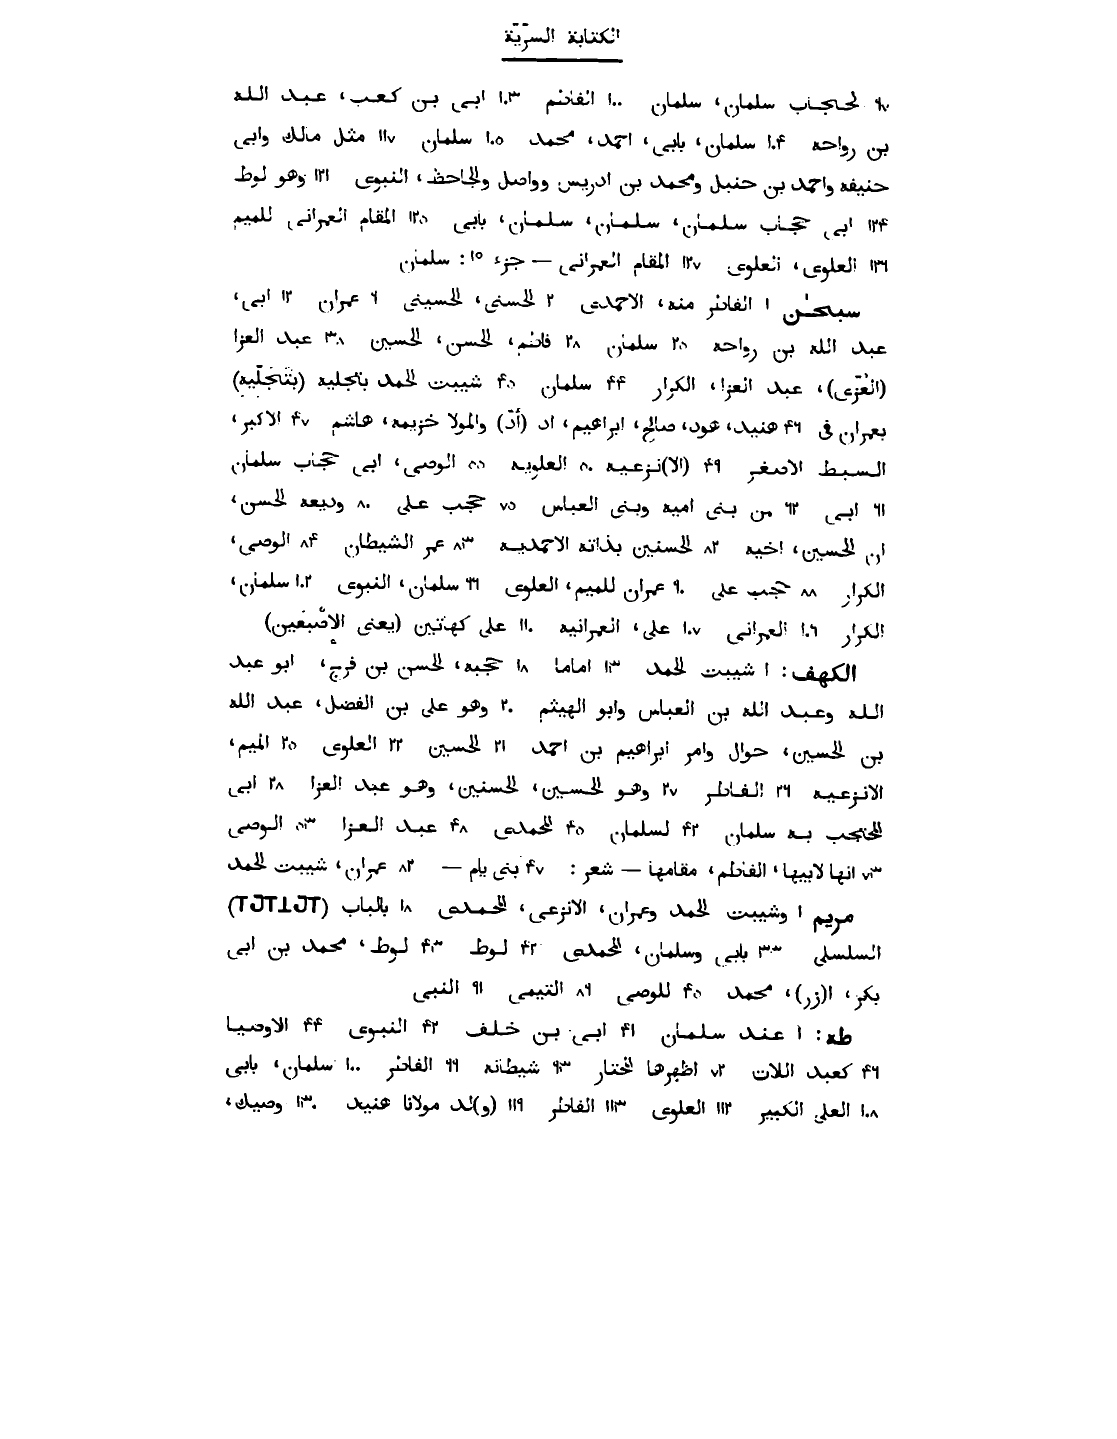 الكتابة السرّيّة
٩٧ لحجاب سلمان، سلمان ١٠٠ الفاطم ١٠٣ ابى بن كعب، عبد الله
بن رواحه ١٠۴ سلمان، بابى، احمد، محمد ١٠۵ سلمان ١١٧ مثل مالك وابى
حنيفه واحمد بن حنبل ومحمد بن ادريس وواصل والجاحظ، النبوى ١٢١ وهو لوط
١٢۴ ابى حجاب سلمان، سلمان، سلمان، بابى ١٢۵ المقام العمرانى للميم
١٢٦ العلوى، العلوى ١٢٧ المقام العمرانى — جزء ١۵ : سلمان
سبحن ١ الفاطر منه، الاحمدى ٢ الحسنى، الحسينى ٦ عمران ١٢ ابى،
عبد الله بن رواحه ٢۵ سلمان ٢٨ فاطم، الحسن، الحسين ٣٨ عبد العزا
(العُزّى)، عبد العزا، الكرار ۴۴ سلمان ۴۵ شيبت الحمد بتجليه (بتَجلّيه)
بعمران فى ۴٦ هنيد، هود، صالح، ابراهيم، اد (أدّ) والمولا خزيمه، هاشم ۴٧ الاكبر،
السبط الاصغر ۴٩ (الا)نزعيه ۵٠ العلويه ۵۵ الوصى، ابى حجاب سلمان
٦١ ابى ٦٢ من بنى اميه وبنى العباس ٧۵ حجب على ٨٠ وديعه الحسن،
ان الحسين، اخيه ٨٢ الحسنين بذاته الاحمديه ٨٣ عمر الشيطان ٨۴ الوصى،
الكرار ٨٨ حجب على ٩٠ عمران للميم، العلوى ٩٩ سلمان، النبوى ١٠٢ سلمان،
الكرار ١٠٦ العمرانى ١٠٧ على، العمرانيه ١١٠ على كهاتين (يعنى الإصْبَعَين)
الكهف: ١ شيبت الحمد ١٣ اماما ١٨ حجبه، الحسن بن فرج، ابو عبد
الله وعبد الله بن العباس وابو الهيثم ٢٠ وهو على بن الفضل، عبد الله
بن الحسين، حوال وامر ابراهيم بن احمد ٢١ الحسين ٢٢ العلوى ٢۵ الميم،
الانزعيه ٢٦ الفاطر ٢٧ وهو الحسين، الحسنين، وهو عبد العزا ٢٨ ابى
المحتجب به سلمان ۴٢ لسلمان ۴۵ المحمدى ۴٨ عبد العزا ۵٣ الوصى
٧٣ انها لابيها، الفاطم، مقامها — شعر : ۴٧ بنى يام — ٨٢ عمران، شيبت الحمد
مريم ١ وشيبت الحمد وعمران، الانزعى، المحمدى ١٨ بالباب
السلسلى ٣٣ بابى وسلمان، المحمدى ۴٢ لوط ۴٣ لوط، محمد بن ابى
بكر، ا(زر)، محمد ۴۵ للوصى ٨٩ التيمى ٩١ النبى
طه: ١ عند سلمان ۴١ ابى بن خلف ۴٢ النبوى ۴۴ الاوصيا
۴٦ كعبد اللات ٧٢ اظهرها المختار ٩٣ شيطانه ٩٩ الفاطر ١٠٠ سلمان، بابى
١٠٨ العلى الكبير ١١٢ العلوى ١١٣ الفاطر ١١٩ (و)لد مولانا هنيد ١٣٠ وصيك،